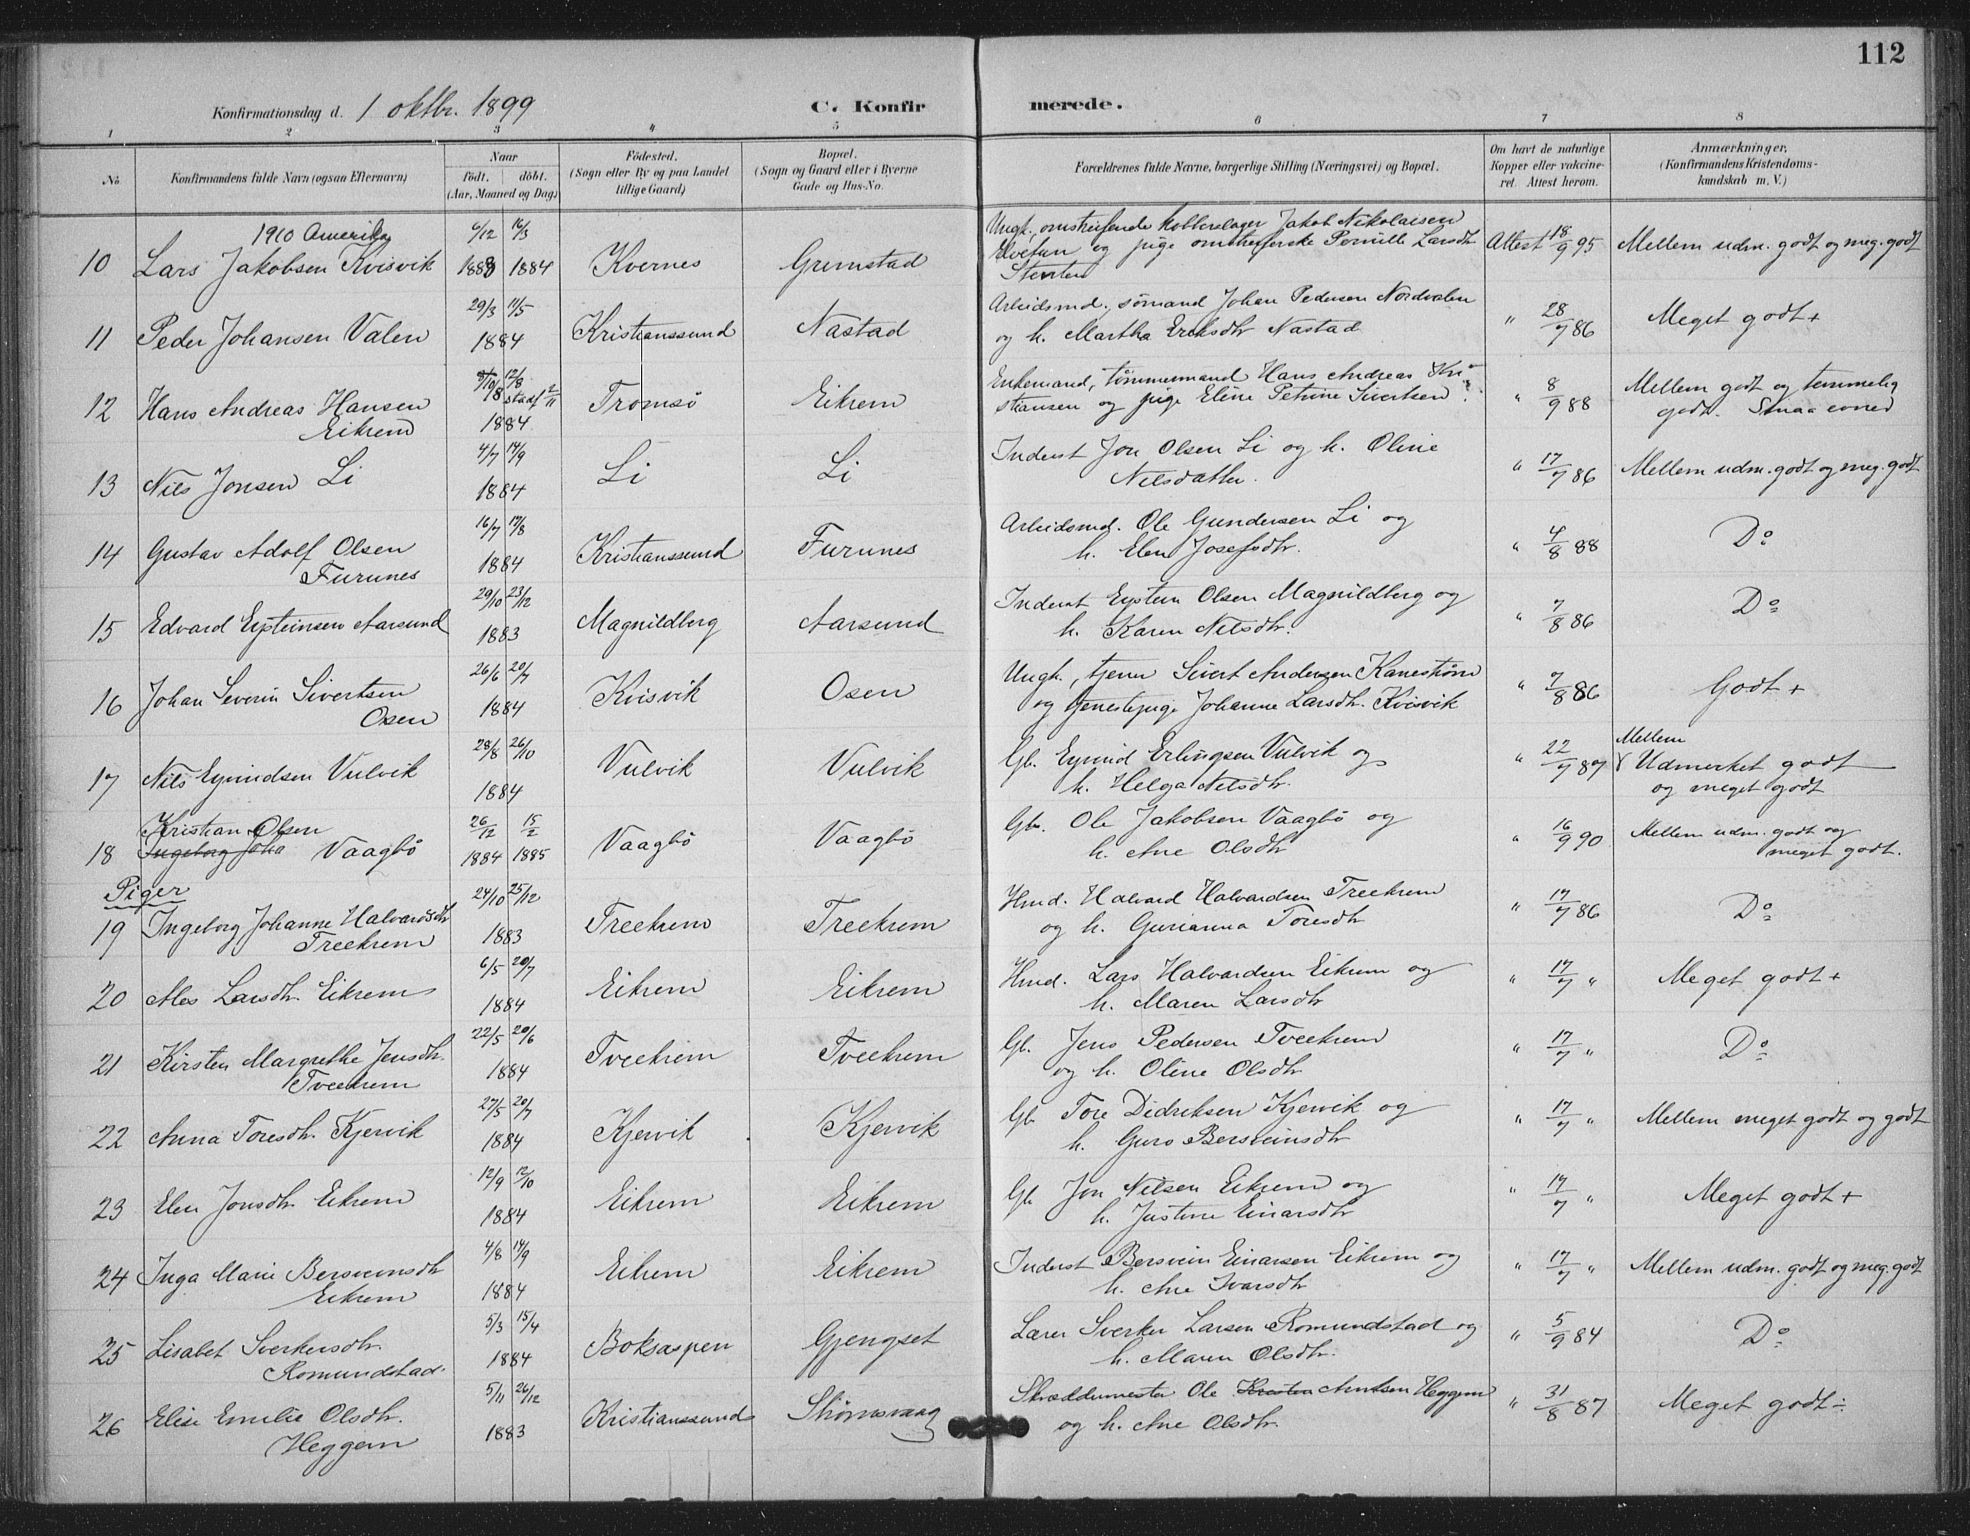 112
Konfirmationsdag d. 1 oktbr. 1899 C. Konfirmerede.
1 2 3 4 5 6 7 8
No. Konfirmandens fulde Navn (ogsaa Efternavn) Naar født. døbt. (Aar, Maaned og Dag) Fødested. (Sogn eller By og paa Landet tillige Gaard) Bopæl. (Sogn og Gaard eller i Byerne Gade og Hus-No. Forældrenes fulde Navne, borgerlige Stilling (Næringsvei) og Bopæl. Om havt de naturlige Kopper eller vaccineret. Attest herom. Anmærkninger, (Konfirmandens Kristendomskundskab m. V.)
1910 Amerika 6/12 16/3 Ungk. omstreifende kobberslager Jakob Nikolaisen
10 Lars Jakobsen Kvisvik 1883 1884 Kvernes Grimstad og pige omstreifende Pernille Larsdtr Attest 18/9 95 Mellem udm. godt og meg. godt
29/3 11/5 Arbeidsmd, sømand Johan Pedersen Nordvalen
11 Peder Johansen Valen 1884 Kristianssund Nastad og h. Martha Eriksdtr Nastad " 28/7 86 Meget godt +
12/8 Enkemand, tømmermand Hans Andreas Kri-
12 Hans Andreas Hansen 1884 Tromsø Eikrem stiansen og pige Eline Petrine Sivertsen " 8/9 88 Mellem godt og temmelig
Eikrem godt. Smaa evner
4/7 14/9 Inderst Jon Olsen Li og h. Oline
13 Nils Jonsen Li 1884 Li Li Nilsdatter. " 17/7 86 Mellem udm. godt og meg. godt
16/7 17/8 Arbeidsmd. Ole Gundersen Li og
14 Gustav Adolf Olsen 1884 Kristianssund Furunes h. Elen Josefsdtr. " 4/8 88 Do
Furunes
29/10 23/12 Inderst Eystein Olsen Magnildberg og
15 Edvard Eysteinsen Aarsund 1883 Magnildberg Aarsund h. Karen Nilsdtr. " 7/8 86 Do
26/6 20/7 Ungk., tjener Sivert Andersen Kanestrøm
16 Johan Severin Sivertsen 1884 Kvisvik Osen og tjenestepige Johanne Larsdtr. Kvisvik " 7/8 86 Godt +
Osen
28/8 26/10 Gb. Eyvind Erlingsen Vulvik og Mellem
17 Nils Eyvindsen Vulvik 1884 Vulvik Vulvik h. Helga Nilsdtr. " 22/7 87 Udmerket godt
og meget godt
Kristian Olsen 26/12 15/2 Gbr. Ole Jakobsen Vaagbø og
18 Ingeborg Joha Vaagbø 1884 1885 Vaagbø Vaagbø h. Ane Olsdtr " 16/9 90 Mellem udm. godt og
meget godt.
Piger
24/10 25/12 Hmd. Halvard Halvardsen Treekrem
19 Ingeborg Johanne Halvardsdtr 1883 Treekrem Treekrem og h. Gurianna Toresdtr " 17/7 86 Do
Treekrem
6/5 20/7 Hmd. Lars Halvardsen Eikrem og
20 Ales Larsdtr. Eikrem 1884 Eikrem Eikrem h. Maren Larsdtr " 17/7 " Meget godt +
22/5 20/6 Gb. Jens Pedersen Tveekrem
21 Kirsten Margrethe Jensdtr. 1884 Tveekrem Tveekrem og h. Oline Olsdtr " 17/7 " Do
Tveekrem
27/5 20/7 Gb. Tore Didriksen Kjervik og
22 Anna Toresdtr. Kjervik 1884 Kjervik Kjervik h. Guro Bersveinsdtr " 17/7 " Mellem meget godt og godt
12/9 12/10 Gb. Jon Nilsen Eikrem og
23 Elen Jonsdtr. Eikrem 1884 Eikrem Eikrem h. Justine Einarsdtr " 17/7 " Meget godt +
4/8 14/9 Inderst Bersvein Einarsen Eikrem og
24 Inga Marie Bersveinsdtr 1884 Eikrem Eikrem h. Ane Ivarsdtr " 17/7 " Mellem udm. godt og meg. godt
Eikrem
5/3 15/4 Lærer Sverker Larsen Romundstad og
25 Lisabet Sverkersdtr. 1884 Boksaspen Gjengset h. Maren Olsdtr. " 5/9 84 Do
Romundstad.
5/11 26/12 Skræddermester Ole Kristen Arntsen Heggem
26 Elise Emilie Olsdtr. 1883 Kristianssund Strømsvaag og h. Ane Olsdtr. " 31/8 87 Meget godt ÷
Heggem